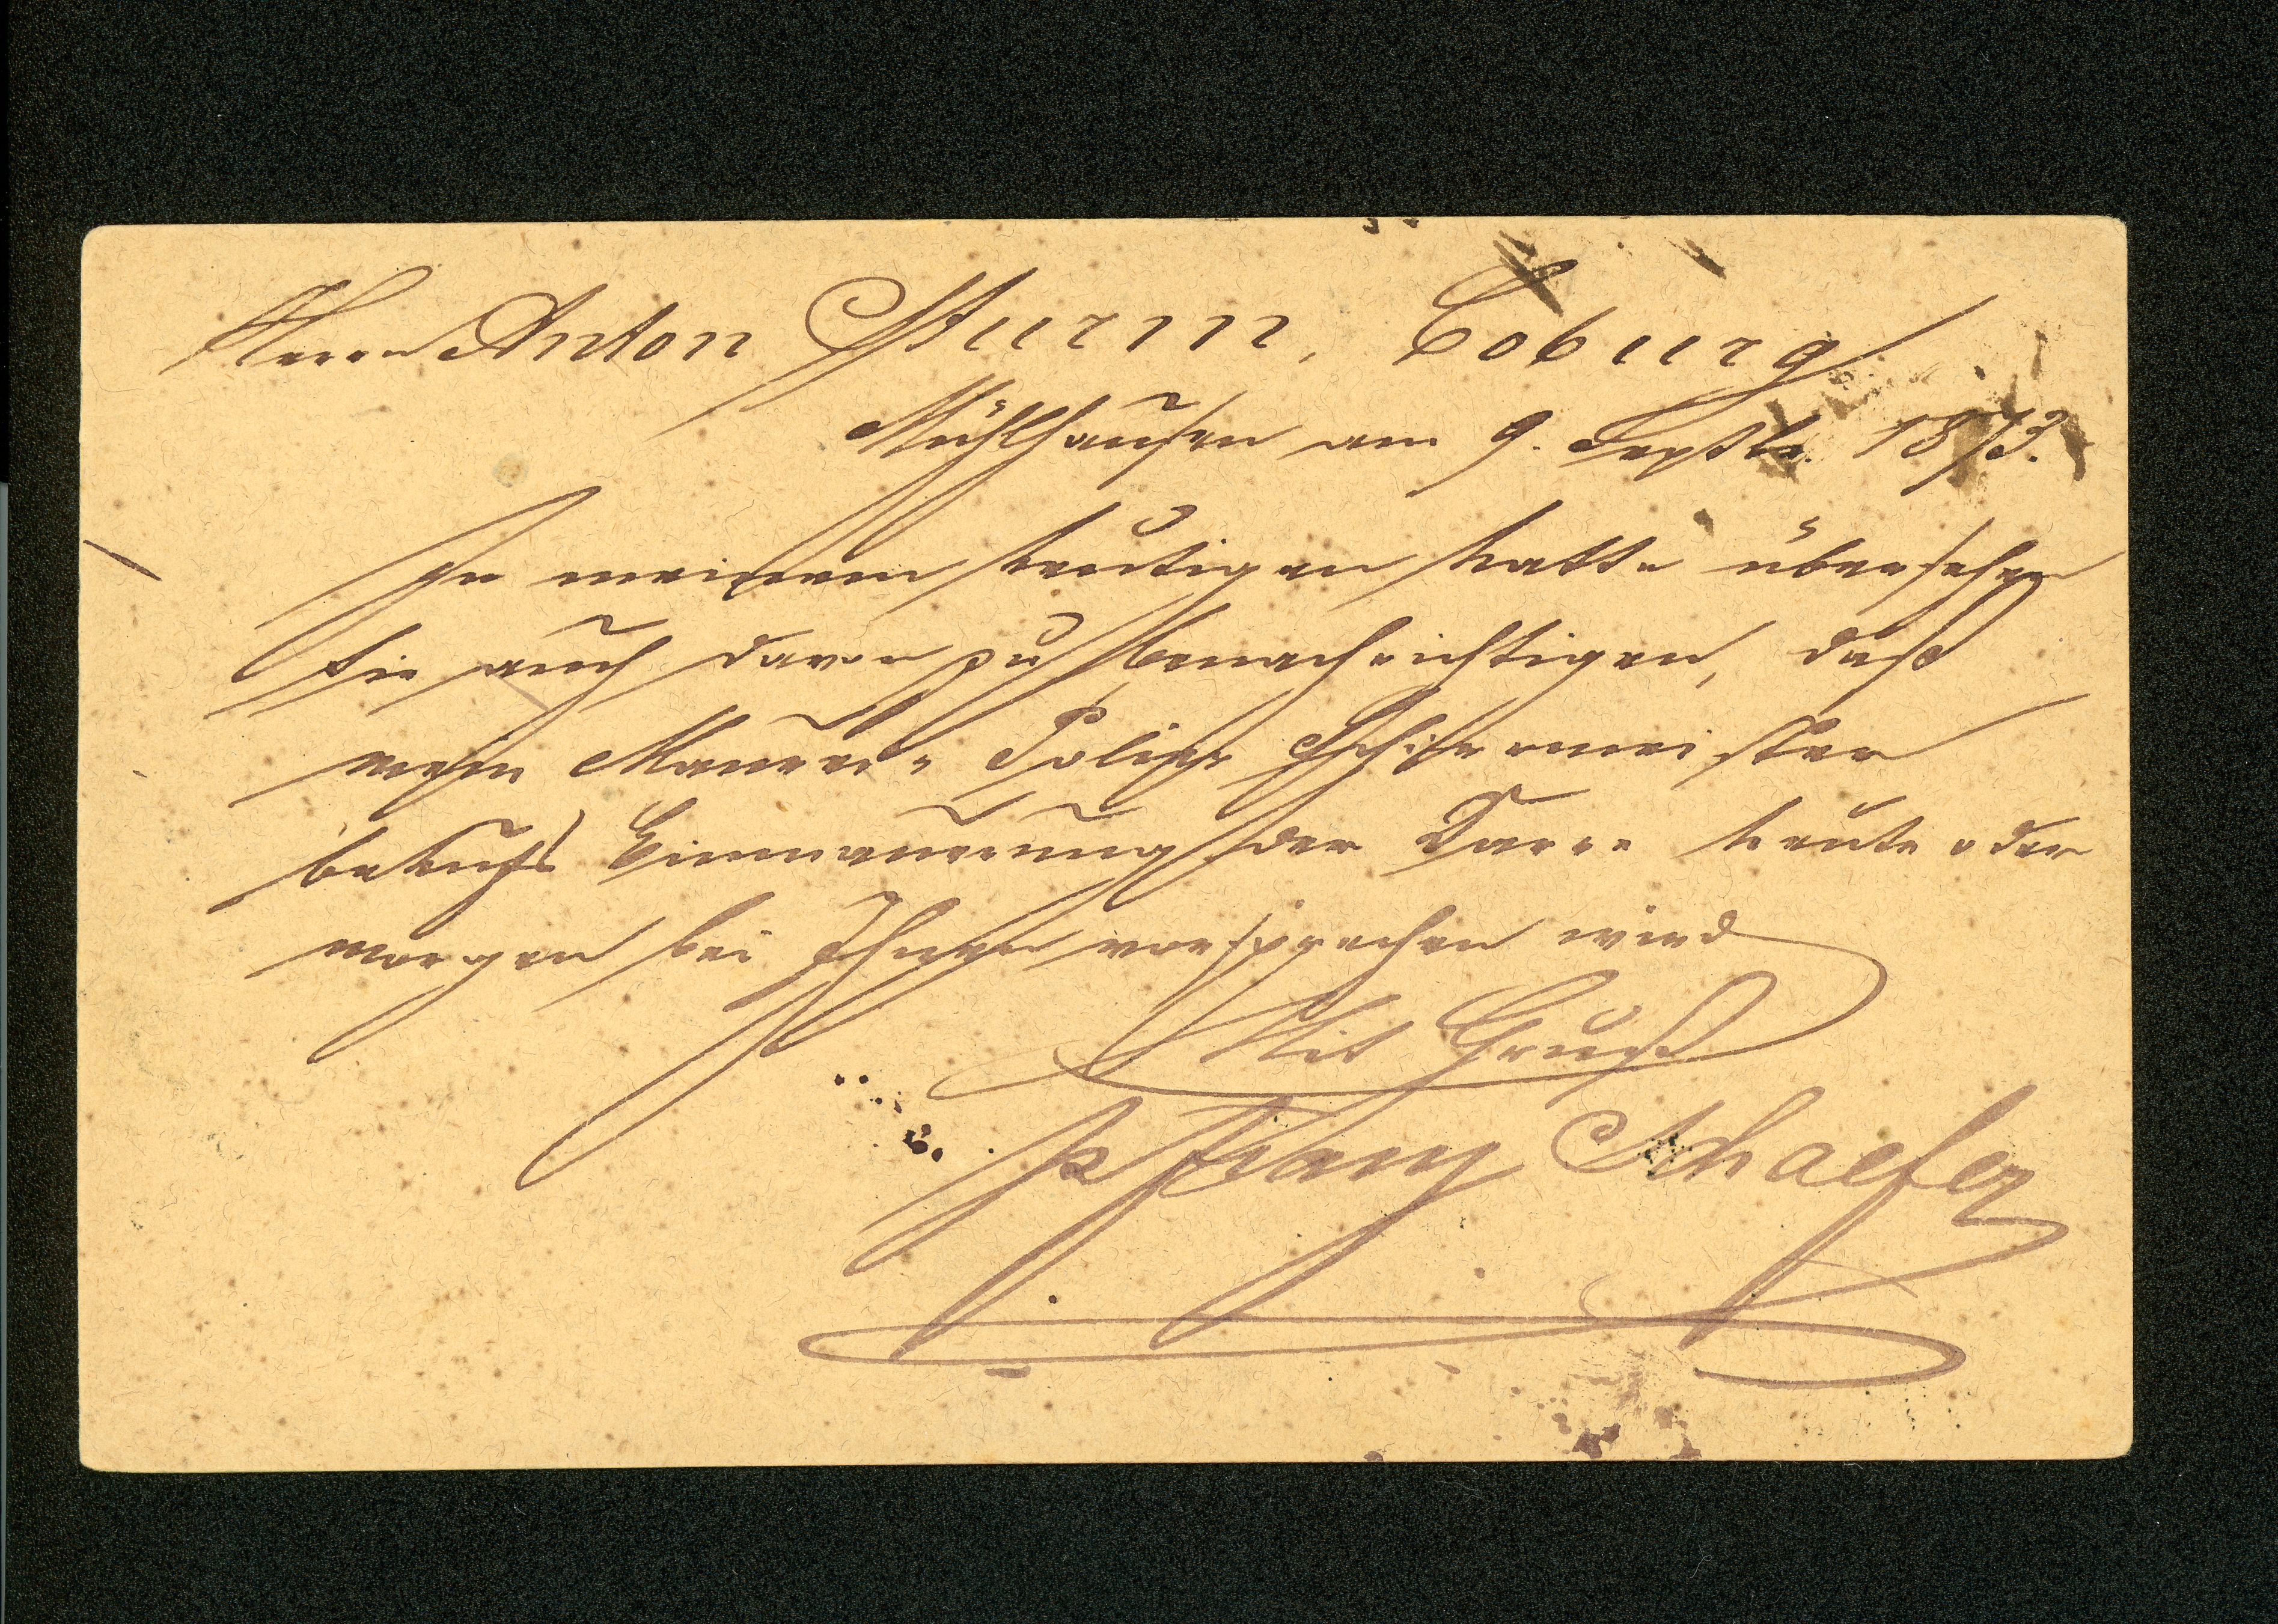 Herrn Anton Sturm, Coburg
Mühlhausen am 9. Septbr. 1873.
In meinem heutigen hatte übersehen
Sie auch davon zu benachrichtigen, daß
mein Maurer-Polier Schirrmeister
behufs Einmauerung der Darre heute oder
morgen bei Ihnen vorsprechen wird
Mit Gruß
Schaefer